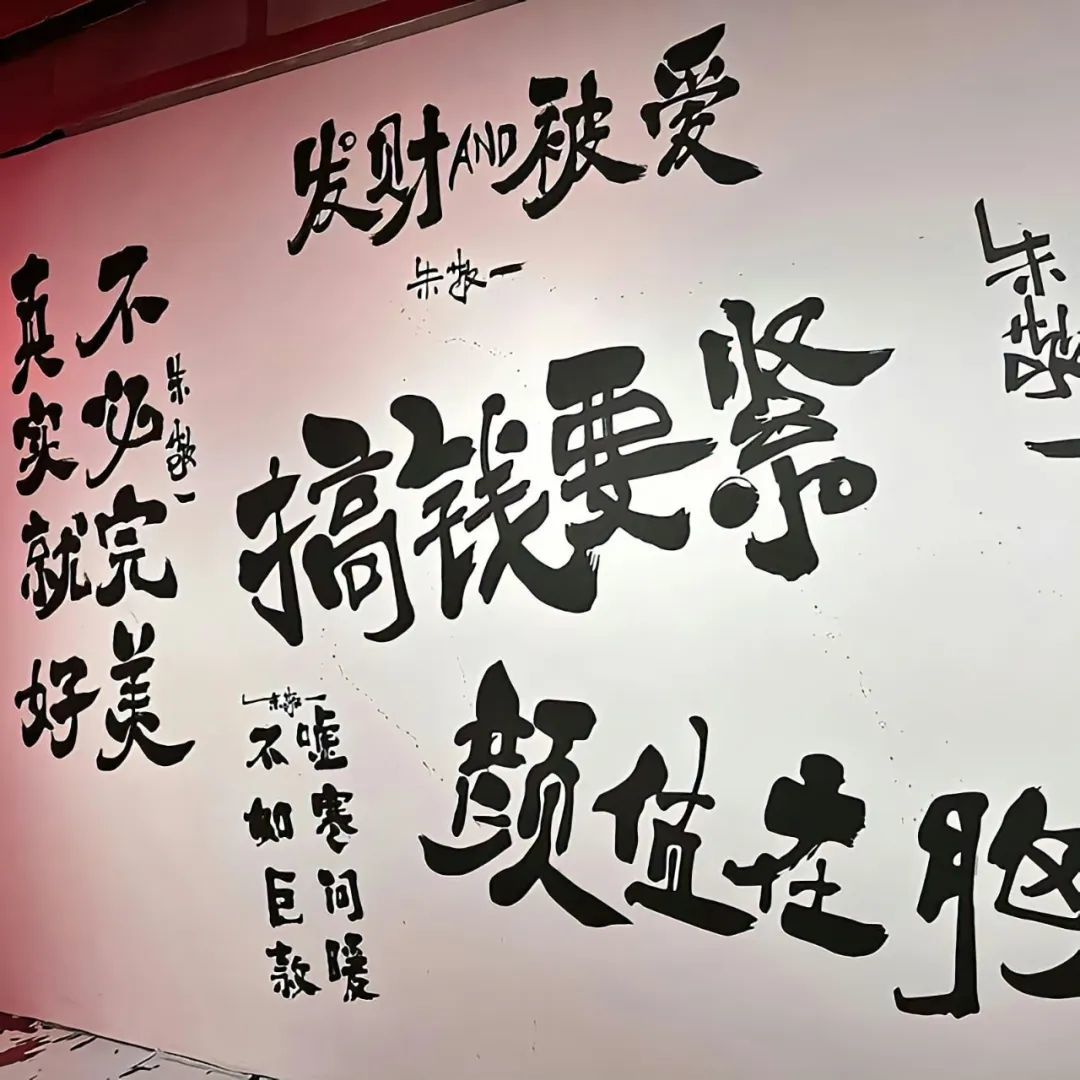 发财AND被爱
朱敬一
不必完美
真实就好
朱敬一
搞钱要紧
朱敬一
朱敬一
嘘寒问暖
不如巨款
颜值在胸